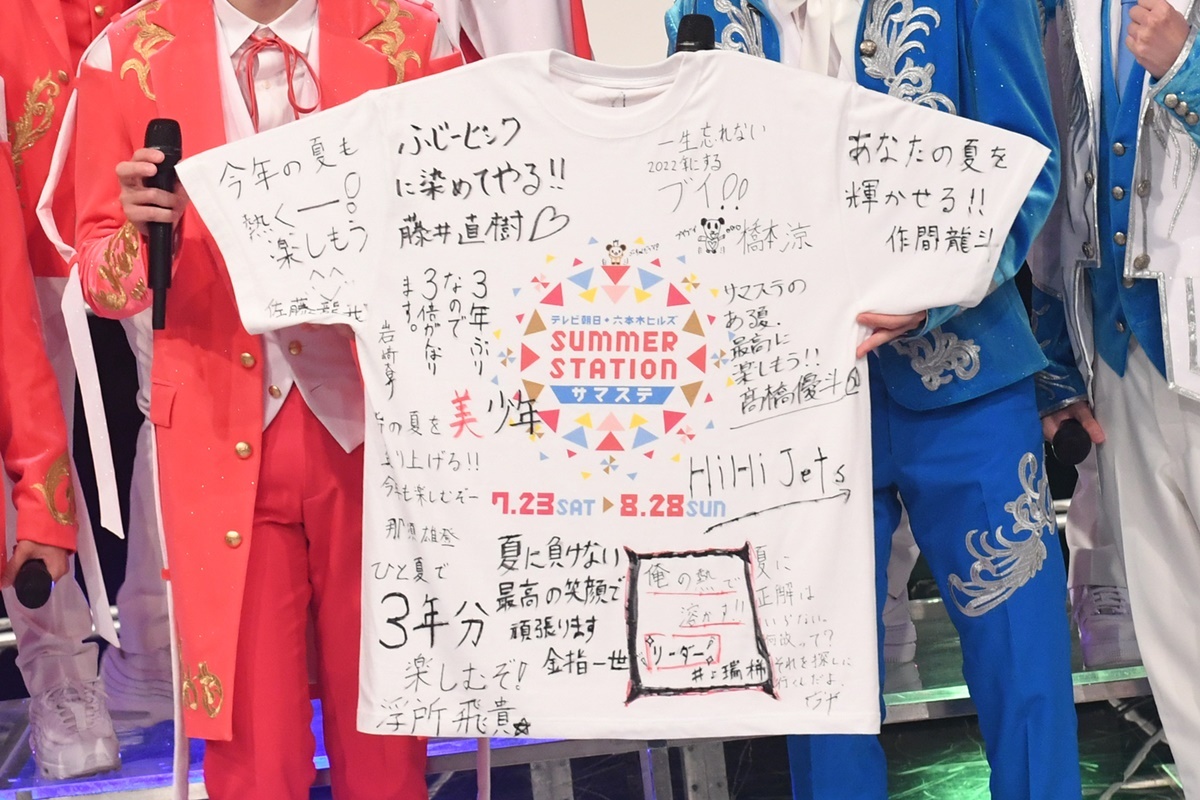 今年の夏も
熱くー!!
楽しもう
^^
佐藤龍我
ふじーピンク
に染めてやる!!
藤井直樹♡
一生忘れない
2022年にする
ブイ!!
橋本涼
あなたの夏を
輝かせる!!
作間龍斗
3年ぶり
なので
3倍がなり
ます。
岩﨑大昇
テレビ朝日・六本木ヒルズ
SUMMER
STATION
サマステ
7.23SAT▶8.28SUN
サマステの
ある夏、
最高に
楽しもう!!
髙橋優斗
HiHi Jets
美 少年
の夏を
上げる!!
今年も楽しむぞー
那須雄登
ひと夏で
3年分
楽しむぞ!
浮所飛貴☆
夏に負けない
最高の笑顔で
頑張ります
金指一世
俺の熱で
溶かす!!
リーダー!
井上瑞稀
夏に
正解は
いらない。
何故って?
それを探しに
行くんだよ。